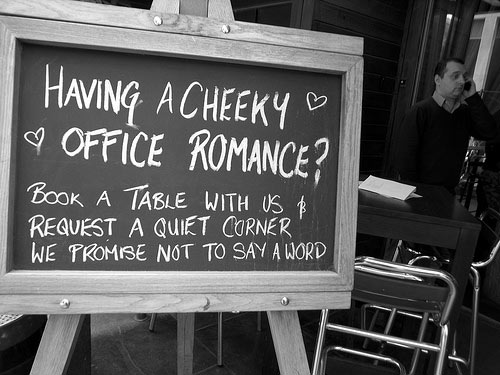 HAVING A CHEEKY
OFFICE ROMANCE?
BOOK A TABLE WITH US &
REQUEST A QUIET CORNER
WE PROMISE NOT TO SAY A WORD